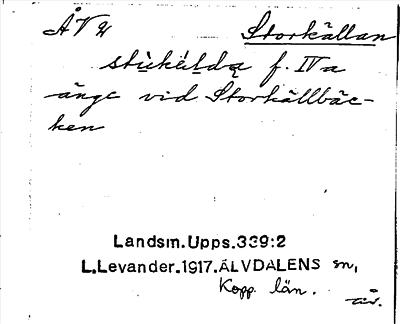 ÅVU Storkällan
f. IVa
änge vid Storkällbäc-
ken
Landsm.Upps.339:2
L.Levander.1917.ÄLVDALENS sn,
Kopp. län.